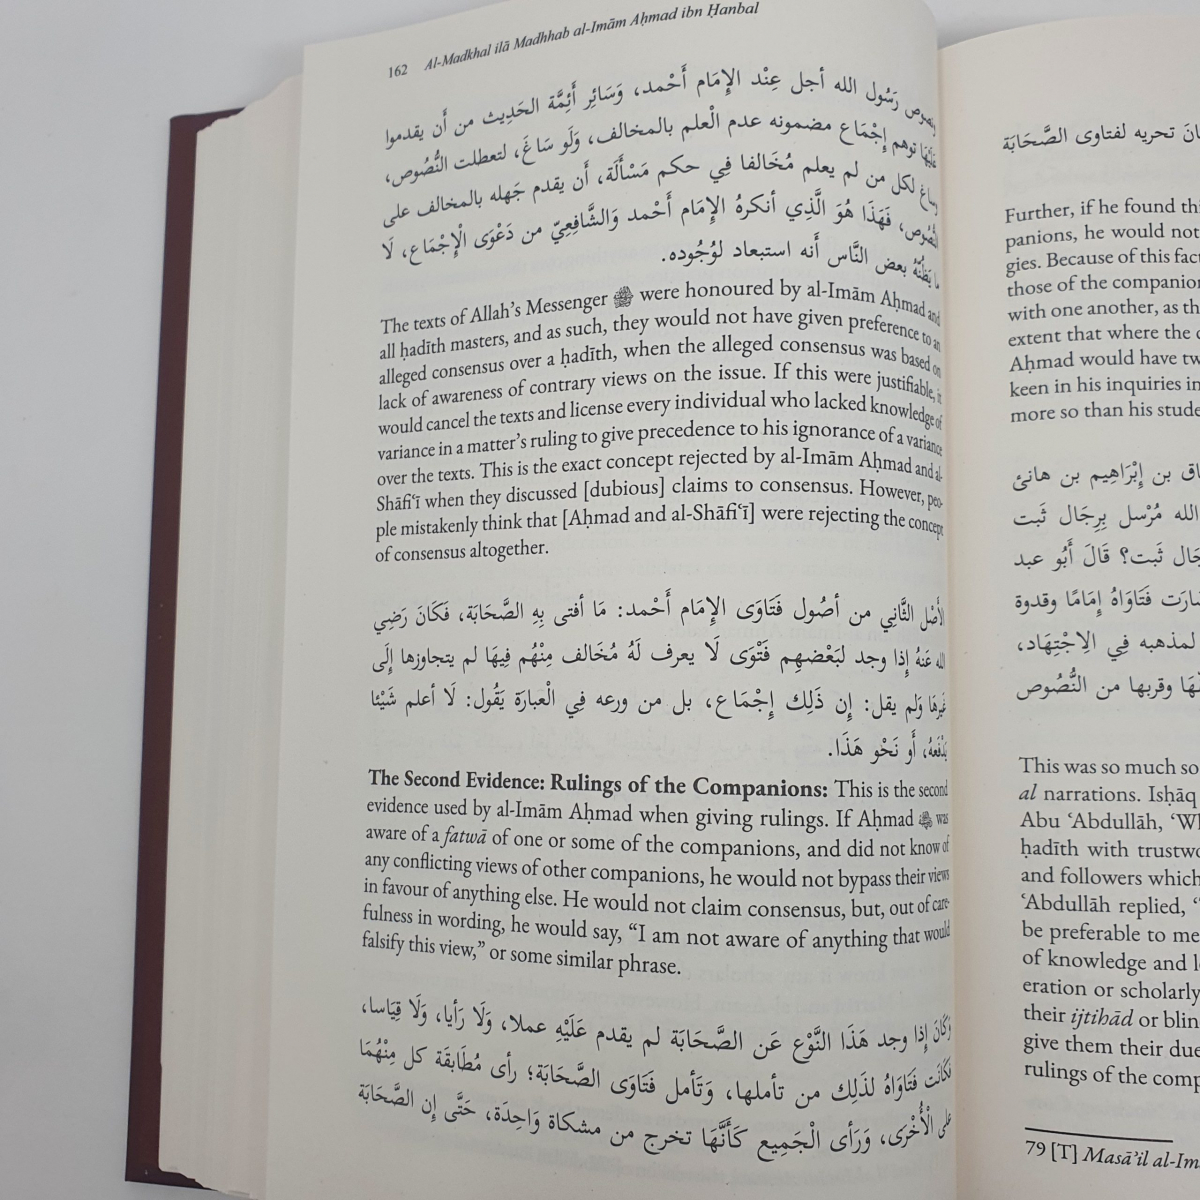 162 Al-Madkhal ilā Madhhab al-Imām Aḥmad ibn Ḥanbal
ونصوص رَسُول الله أجل عِنْد الإِمَام أَحْمد، وَسَائِر أَئِمَّة الحَدِيث من أَن يقدموا
عَلَيْهَا توهم إِجْمَاع مضمونه عدم الْعلم بالمخالف، وَلَو سَاغَ، لتعطلت النُّصُوص،
وساغ لكل من لم يعلم مُخَالفا فِي حكم مَسْأَلَة، أَن يقدم جَهله بالمخالف على
النُّصُوص، فَهَذَا هُوَ الَّذِي أنكرهُ الإِمَام أَحْمد وَالشَّافِعِيّ من دَعْوَى الْإِجْمَاع، لَا
مَا يَظُنُّهُ بعض النَّاس أَنه استبعاد لوُجُوده.
The texts of Allah's Messenger ﷺ were honoured by al-Imām Aḥmad and
all ḥadīth masters, and as such, they would not have given preference to an
alleged consensus over a ḥadīth, when the alleged consensus was based on
lack of awareness of contrary views on the issue. If this were justifiable, it
would cancel the texts and license every individual who lacked knowledge of
variance in a matter's ruling to give precedence to his ignorance of a variance
over the texts. This is the exact concept rejected by al-Imām Aḥmad and al-
Shāfiʿī when they discussed [dubious] claims to consensus. However, peo-
ple mistakenly think that [Aḥmad and al-Shāfiʿī] were rejecting the concept
of consensus altogether.
الأَصْل الثَّانِي من أصُول فَتَاوَى الإِمَام أَحْمد: مَا أفتى بِهِ الصَّحَابَة، فَكَانَ رَضِي
الله عَنهُ إِذا وجد لبَعْضهِم فَتْوَى لَا يعرف لَهُ مُخَالف مِنْهُم فِيهَا لم يتجاوزها إِلَى
غَيرهَا وَلم يقل: إِن ذَلِك إِجْمَاع، بل من ورعه فِي الْعبارَة يَقُول: لَا أعلم شَيْئا
يَدْفَعهُ، أَو نَحْو هَذَا.
The Second Evidence: Rulings of the Companions: This is the second
evidence used by al-Imām Aḥmad when giving rulings. If Aḥmad was
aware of a fatwā of one or some of the companions, and did not know of
any conflicting views of other companions, he would not bypass their views
in favour of anything else. He would not claim consensus, but, out of care-
fulness in wording, he would say, "I am not aware of anything that would
falsify this view," or some similar phrase.
وَكَانَ إِذا وجد هَذَا النَّوْع عَن الصَّحَابَة لم يقدم عَلَيْهِ عملا، وَلَا رَأيا، وَلَا قِيَاسا،
فَكَانَت فَتَاوَاهُ لذَلِك من تأملها، وَتَأمل فَتَاوَى الصَّحَابَة؛ رأى مُطَابقَة كل مِنْهُمَا
على الْأُخْرَى، وَرَأى الْجَمِيع كَأَنَّهَا تخرج من مشكاة وَاحِدَة، حَتَّى إِن الصَّحَابَة
تحريه لفتاوى الصَّحَابَة
Further, if he found
panions, he would not
gies. Because of this fact
those of the companion
with one another, as
extent that where the
Aḥmad would have
keen in his inquiries in
more so than his
بن إِبْرَاهِيم بن هانئ
الله مُرْسل بِرِجَال ثَبت
ثَبت؟ قَالَ أَبُو عبد
فَتَاوَاهُ إِمَامًا وقدوة
لمذهبه فِي الِاجْتِهَاد،
وقربها من النُّصُوص
This was so much so
al narrations. Isḥāq
Abu ʿAbdullāh,
ḥadīth with
and followers which
ʿAbdullāh replied,
be preferable to me
of knowledge and
eration or scholarly
their ijtihād or
give them their due
rulings of the
79 [T] Masāʾil